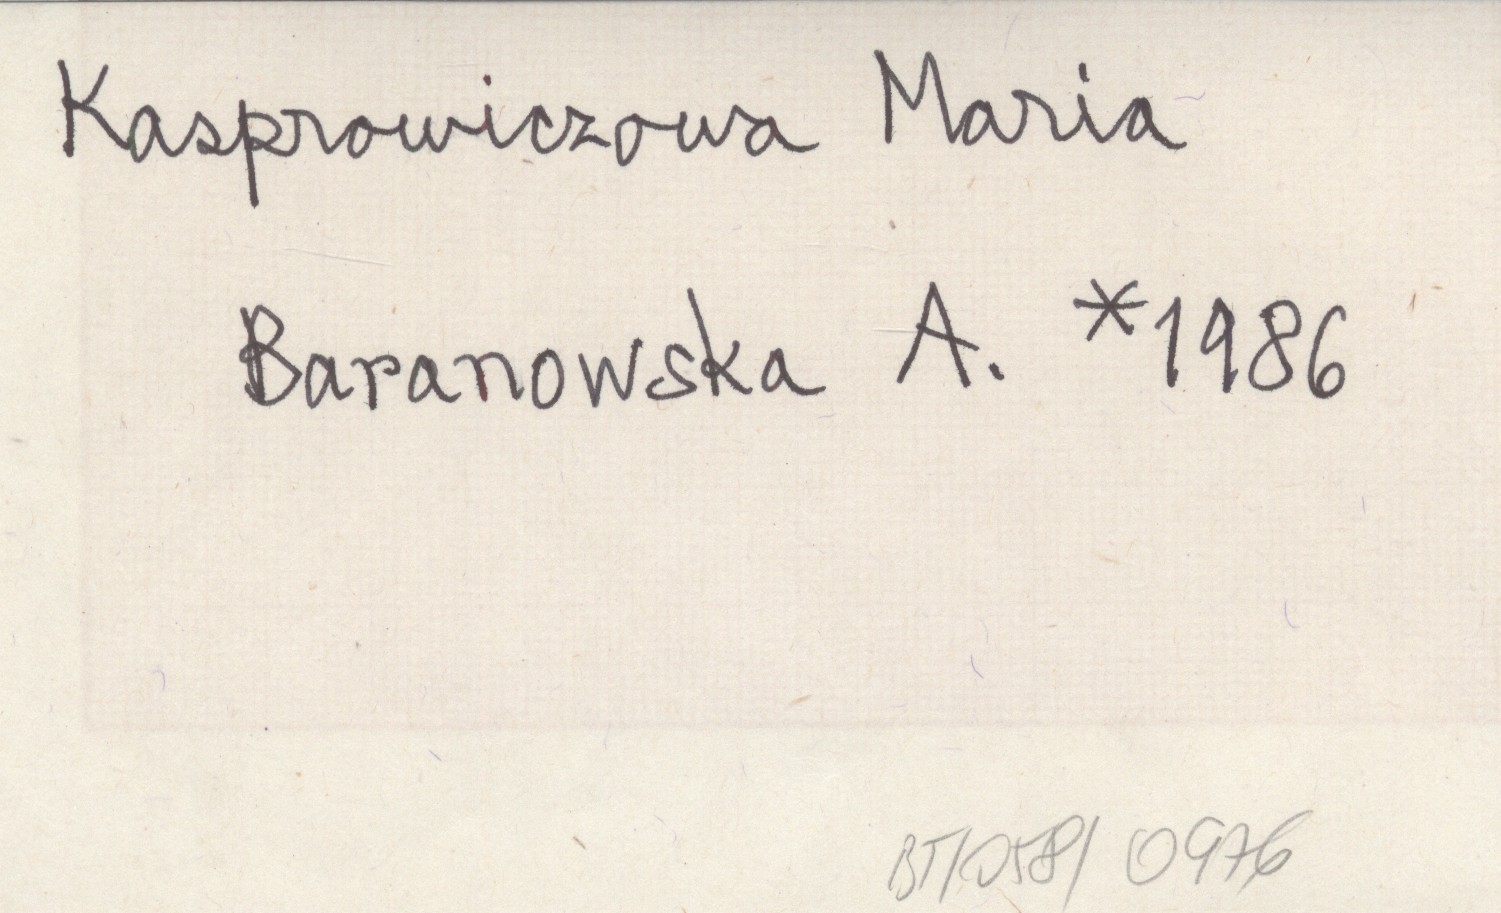 Kasprowiczowa Maria
Baranowska A. *1986
BT/058/ 0976